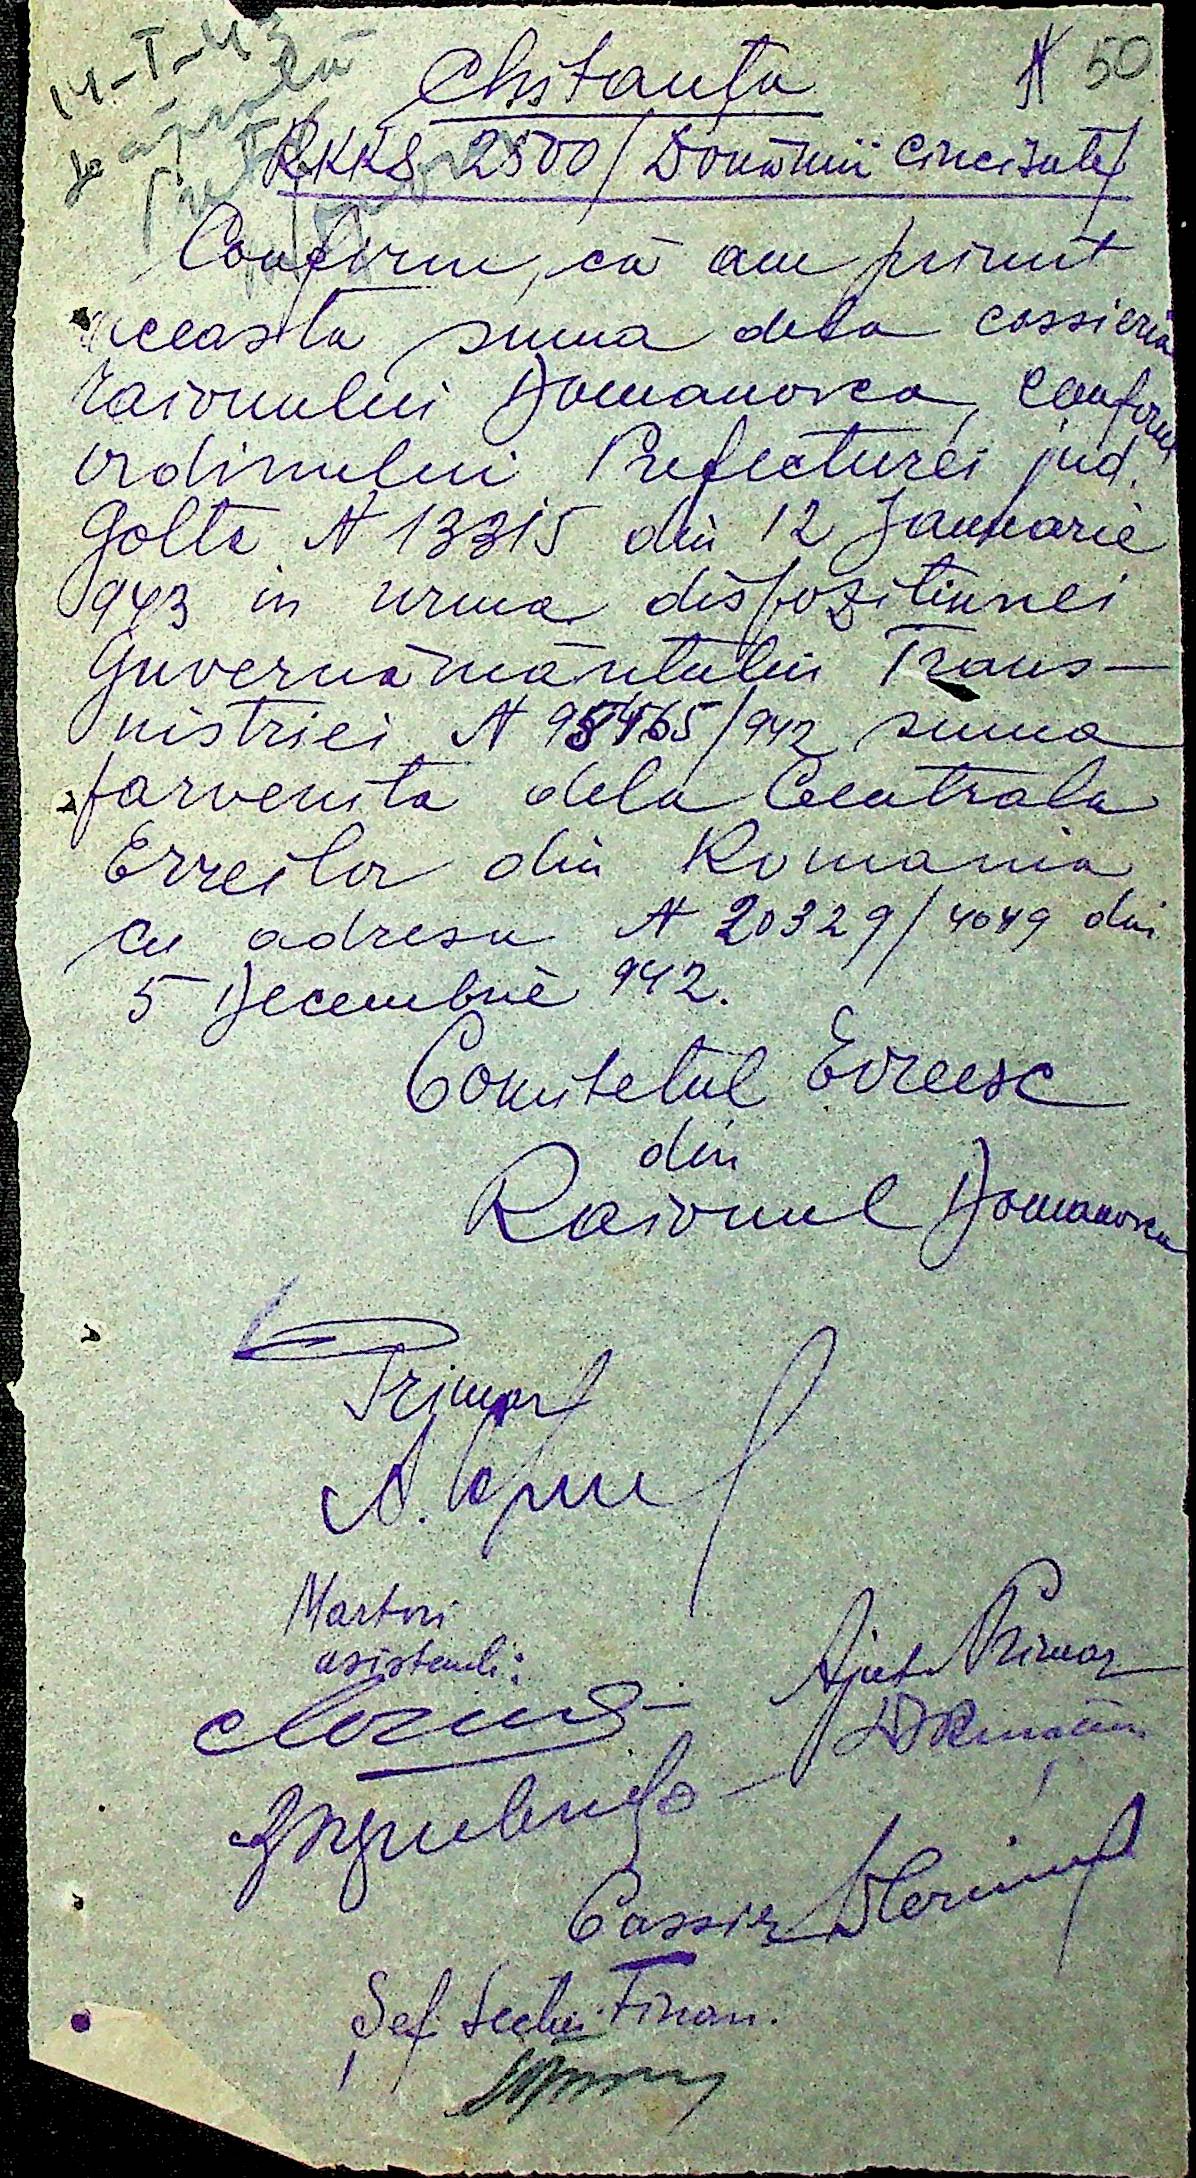 14-I-43
Chitanța
№ 50
RKKS 2500/Douămii cincisute/
Confirm, că am primit
aceasta suma dela cassieria
raionului Domanovca, conform
ordinului Prefecturei jud.
Golta № 13315 din 12 Januarie
943 in urma dispozitiunei
Guvernământului Trans-
nistriei № 95465/942 suma
parvenita dela Centrala
Evreilor din Romania
cu adresa № 20329/4049 din
5 Decembrie 942.
Comitetul Evreesc
din
Raionul Domanovca
Primar
Martori
asistenti:
Ajut. Primar
Cassier
Șef Secției Finan.